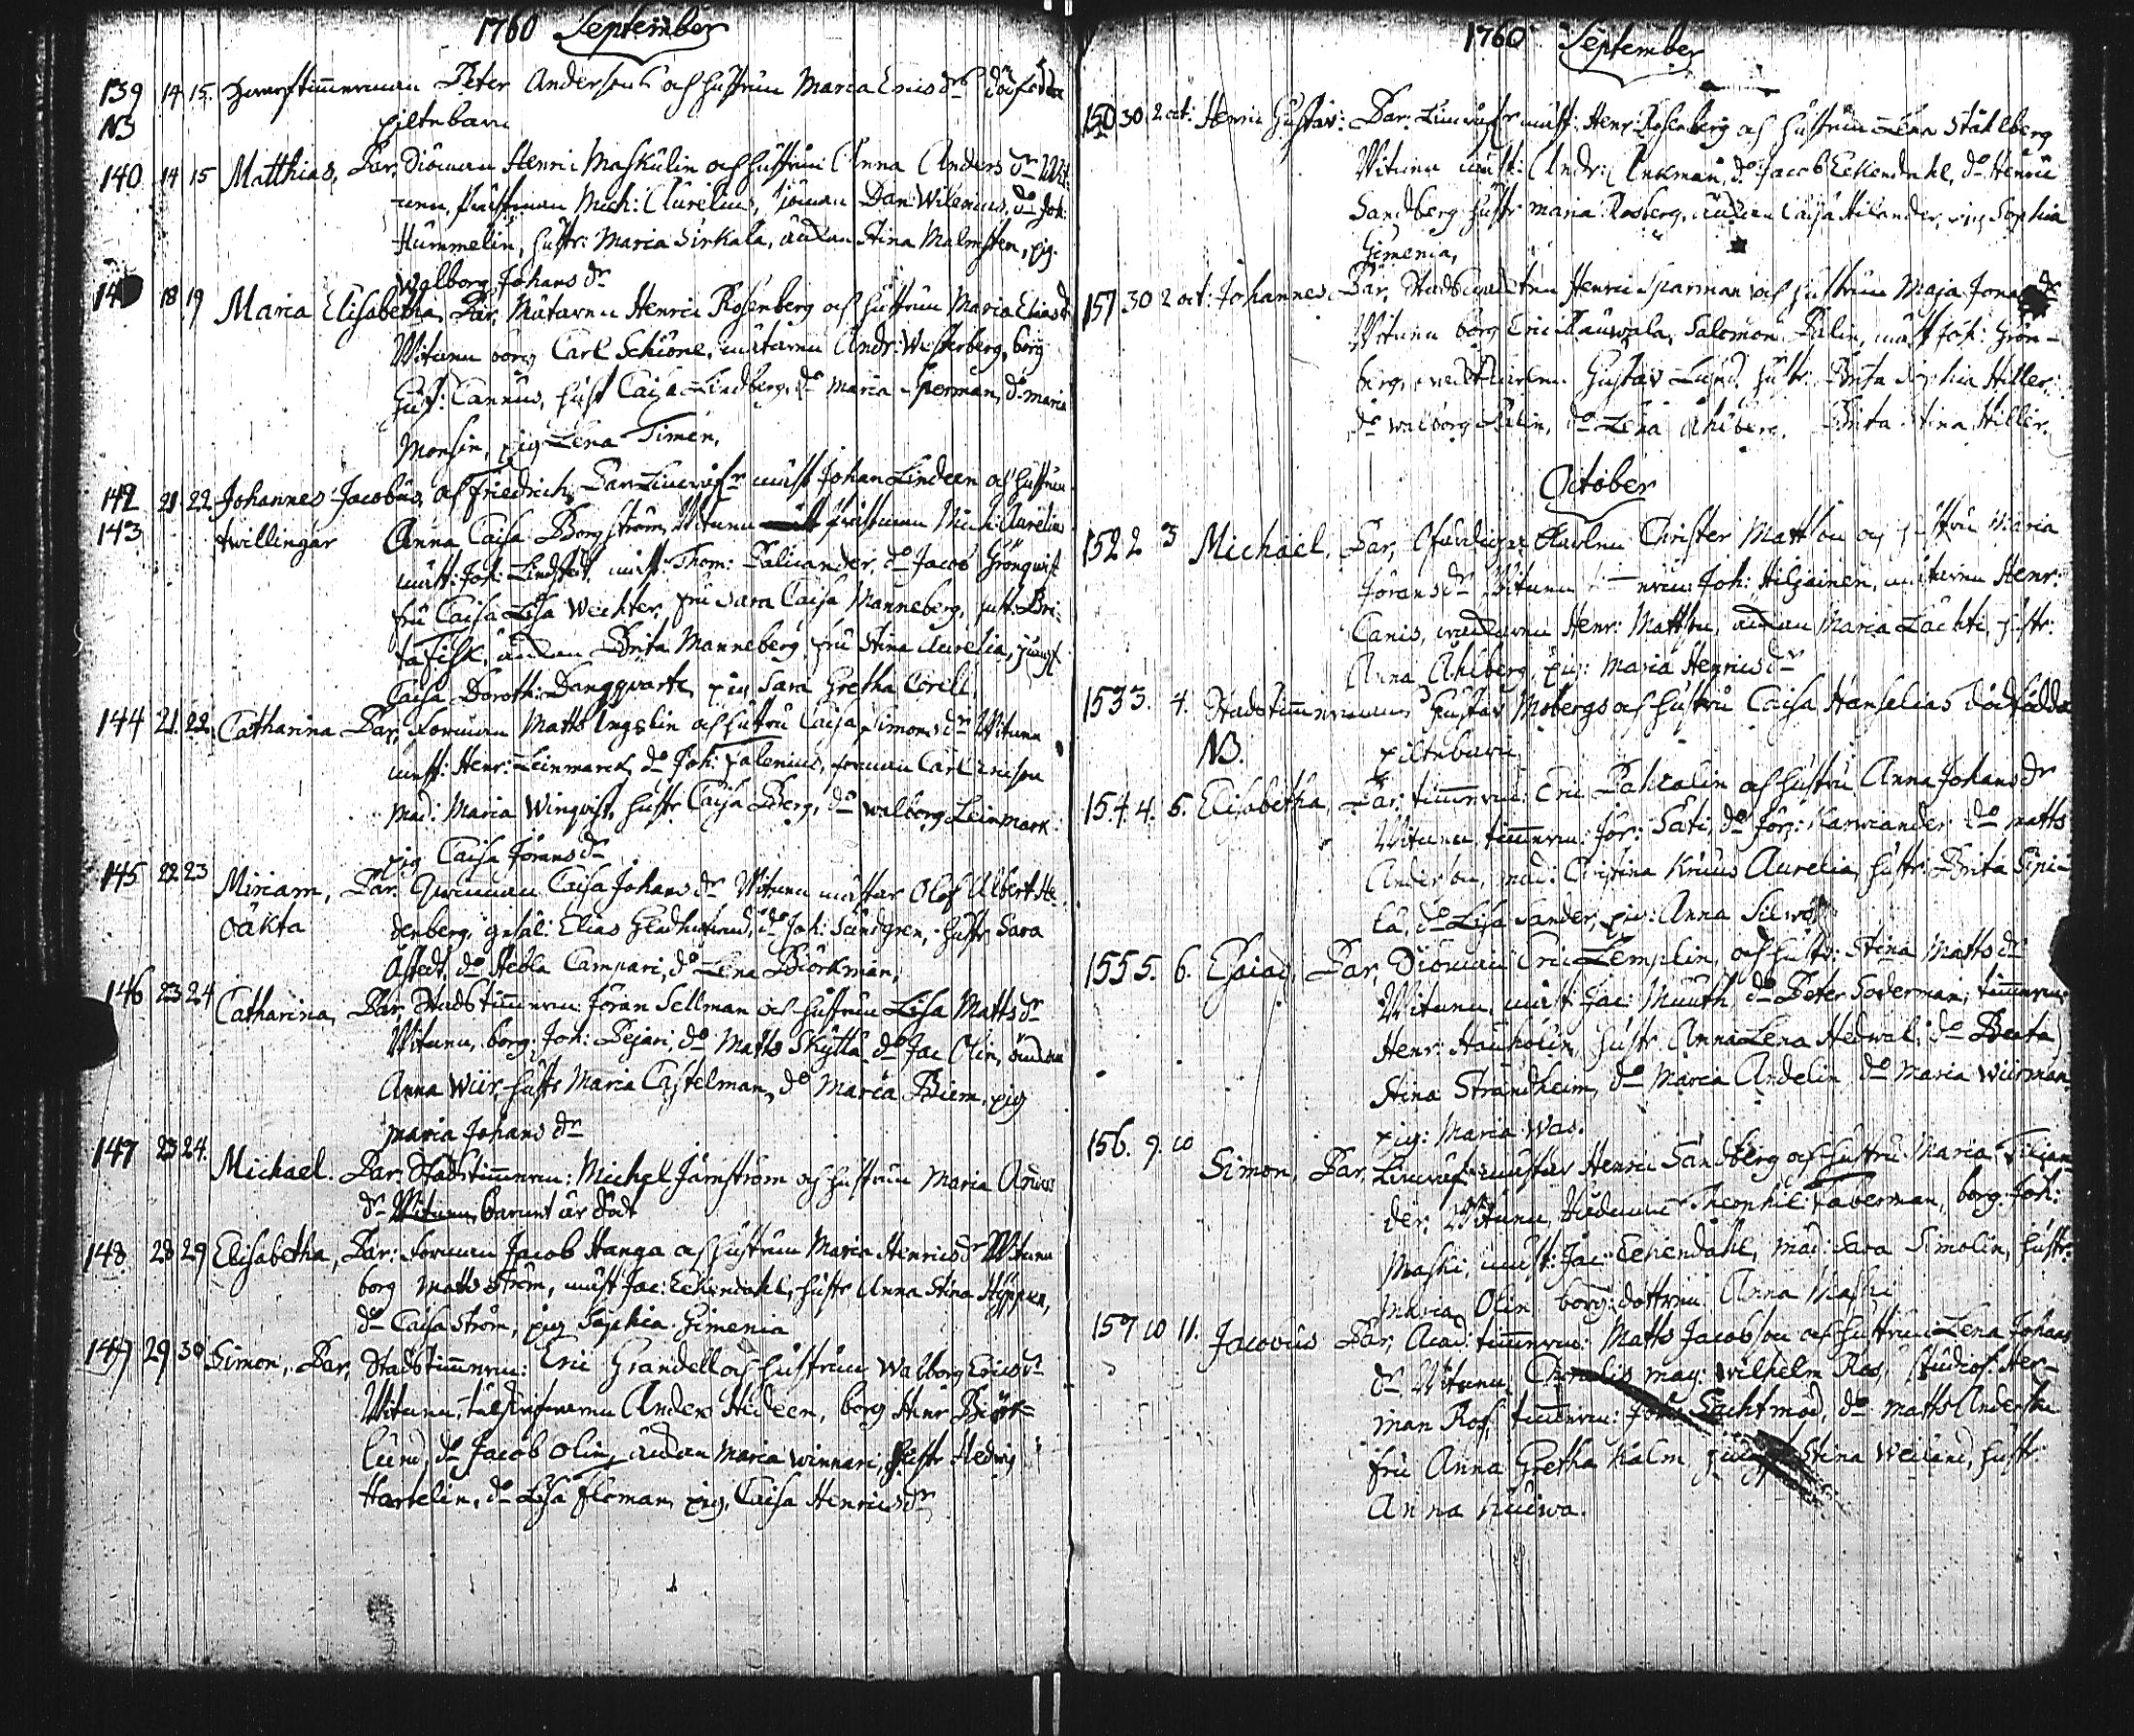 1760 September
139 14 15. timmerman Peter Andersons och hustrun Maria Ericsdr dödfödda
NB piltebarn
140 14 15 Matthias, Par, Sjöman Henric Maskulin och hustrun Anna Andersdr Wit-
Mich: Aurelius, Sjöman Dan: Wilenius, do Joh:
Hummelin, hustr: Maria Sirkala, änkan Stina Malmsten, pig.
Walborg Johansdr
14 18 19 Maria Elisabetha, Par, Mätaren Henric Rosenberg och hustrun Maria Eliasdr
Witnen borg Carl Schiöne, mätaren Andr: Westerberg, borg
Gust: Cannus, hust Caisa Lindberg, do Maria Sperman, do Maria
Monsin, pig Lena Timen.
142 21 22 Johannes Jacobus, och Friedrich, Par Johan Lindeen och hustrun
143 twillingar Anna Caisa Borgström, Witnen Mich: Aurelius
mäst: Joh: Lindstedt, mäst: Thom: Palicander, do Jacob Grönqvist
fru Caisa Lisa Wechter, fru Sara Caisa Manneberg, hust: Bri-
ta Fisk, änkan Brita Manneberg, fru Stina Aurelia, jungf
Caisa Doroth: Dangqvarte, pig Sara Gretha Corell.
144 21. 22. Catharina Par, Forman Matts Ingelin och hustru Caisa Simonsdr Witnen
mäst: Henr: Leinmarck, do Joh: Palenius, forman Carl Ericson
Mad: Maria Winqvist, hustr Caisa Berg, do Walborg Leinmark
pig Caisa Jöransdr
145 22 23 Miriam, Par. Qwinnan Caisa Johansdr Witnen mästar Olof Albert He-
oäkta denberg, gesäl: Elias do Joh: Sundgren, hustr Sara
Åstedt, do Hebla Campari, do Lena Biörkman,
146 23 24 Catharina, Par, Stadstimmerm: Jöran Sellman och hustrun Lisa Mattsdr
Witnen, borg: Joh: Pejari, do Matts Skyttä, do Jac Olin, änkan
Anna Wiir hustr Maria Castelman, do Maria Biem, pig
Maria Johansdr
147 23 24. Michael. Par: Stadstimmerm: Michel Järnström och hustrun Maria
dr Witnen, barnet är dödt
148 28 29 Elisabetha, Par: forman Jacob Hanga och hustrun Maria Henricsdr Witnen
borg Matts Ström, mäst Jac: Eckendahl, hustr Anna Stina Hyppen,
do Caisa Ström, pig Sophia Gimenia
149 29 30 Simon, Par, Stadstimmerm: Eric Grandell och hustrun Walborg Ericsdr
Witnen, Anders Hideen, borg Henr Biörk-
lund, do Jacob Olin, änkan Maria Winnari, hustr Hedwig
Hartelin, do Lisa Floman, pig, Caisa Henricsdr
1760 September
150 30 2 oct: Henric Gustav: Par: mäst: Henr: Rosenberg och hustrun Lena Stahlberg
Witnen mäst: Andr: Ankman, do Jacob Eckendahl, do Henric
Sandberg hustr Maria Rosberg, änkan Caisa Hilander, pig Sophia
Gimenia,
151 30 2 oct: Johannes. Par, Henric Sparman och hustrun Maja
Witnen borg Eric Rauwala, Salomon Palin, mäst Joh: Grön-
berg, Gustav Lund, hustr. Brita Sophia Hiller:
do Walborg Palin, do Lena Ahlberg. Brita Stina Hiller.
October
152 2 3 Michael, Par, Christer Mattson och hustru Maria
Jöransdr Witnen Joh: Hiljainen, mätaren Henr:
Canis, Henr: Mattson, änkan Maria Lächti, hustr:
Anna Ahlberg, pig: Maria Henricsdr
153 3. 4. Stadstimmerman Gustav Mobergs och hustru Caisa Hanselias dödfödda
NB. piltebarn
154 4. 5. Elisabetha, Par, timmerm: Eric Pahcalin och hustru Anna Johansdr
Witnen timmerm: Jör: Sati, do Jör: Karwiander do Matts
Anderson, mad: Christina Krius Aurelia, hustr: Brita Sipi-
lä, do Lisa Sander, pig: Anna
155 5. 6. Esaias, Par, Sjöman Eric Lemplin, och hustr: Stina Mattsdr
Witnen, mäst Jac: Muuth do Peter Soderman, timmerm:
Henr: Hauholin, hustr Anna Lena Hedwal: do Beata
Stina Strandheim, do Maria Andelin do Maria Wiirman
pig: Maria Was.
156. 9. 10 Simon, Par, mästar Henric Sandberg och hustru Maria Filjan-
der: Witnen, Theophil: Faberman, borg: Joh:
Maski, mäst: Jac: Eckendahl, mad: Sara Simolin, hustr:
Maria Olin borg: dottren Anna Maski
157 10 11. Jacobus Par, Acad: timmerm: Matts Jacobson och hustrun Lena Johans
dr Witnen, mag: Wilhelm Ros, Studios: Her-
man Ros, timmerm: Sachtmod, do Matts Anderson
fru Anna Gretha Kalm Stina Weiland, hustr:
Anna